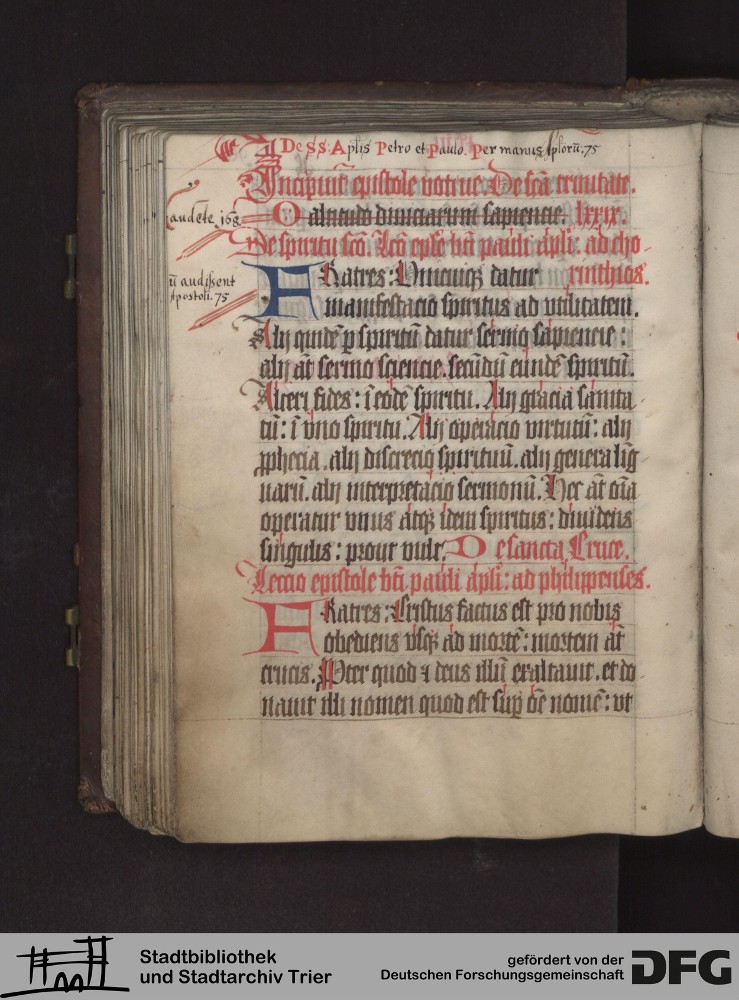 De S S: Aplis Petro et Paulo. Per manus Aplorū. 75
Incipiūt epistole votiue. De scā trinitate.
audete 168
O altitudo diuiciarum sapiencie. lxxix.
De spiritu scō. Lcō epłe bti pauli apli: ad cho-
FRatres: Vnicuiqȝ datur rinthios.
ū audissent
Apostoli. 75
manifestacio spiritus ad vtilitatem.
Alij quidē ꝑ spiritū datur sermo sapiencie:
alij āt sermo sciencie. secūdū eūndē spiritū.
Alteri fides: ī eodē spiritu. Alij gracia sanita
tū: ī vno spiritu. Alij operacio virtutū: alij
ꝓphecia. alij discrecio spirituū. alij genera līg
uarū. alij interpretacio sermonū. Hec āt oīa
operatur vnus atqȝ idem spiritus: diuidens
singulis: prout vult. De sancta Cruce.
Leccio epistole bti pauli apli: ad philippenses.
FRatres: Cristus factus est pro nobis
obediens vsqȝ ad mortē: mortem āt
crucis. Ꝓpter quod ⁊ deus illū exaltauit. et do
nauit illi nomen quod est suꝑ oē nomē: vt
Stadtbibliothek
und Stadtarchiv Trier
gefördert von der
Deutschen Forschungsgemeinschaft
DFG